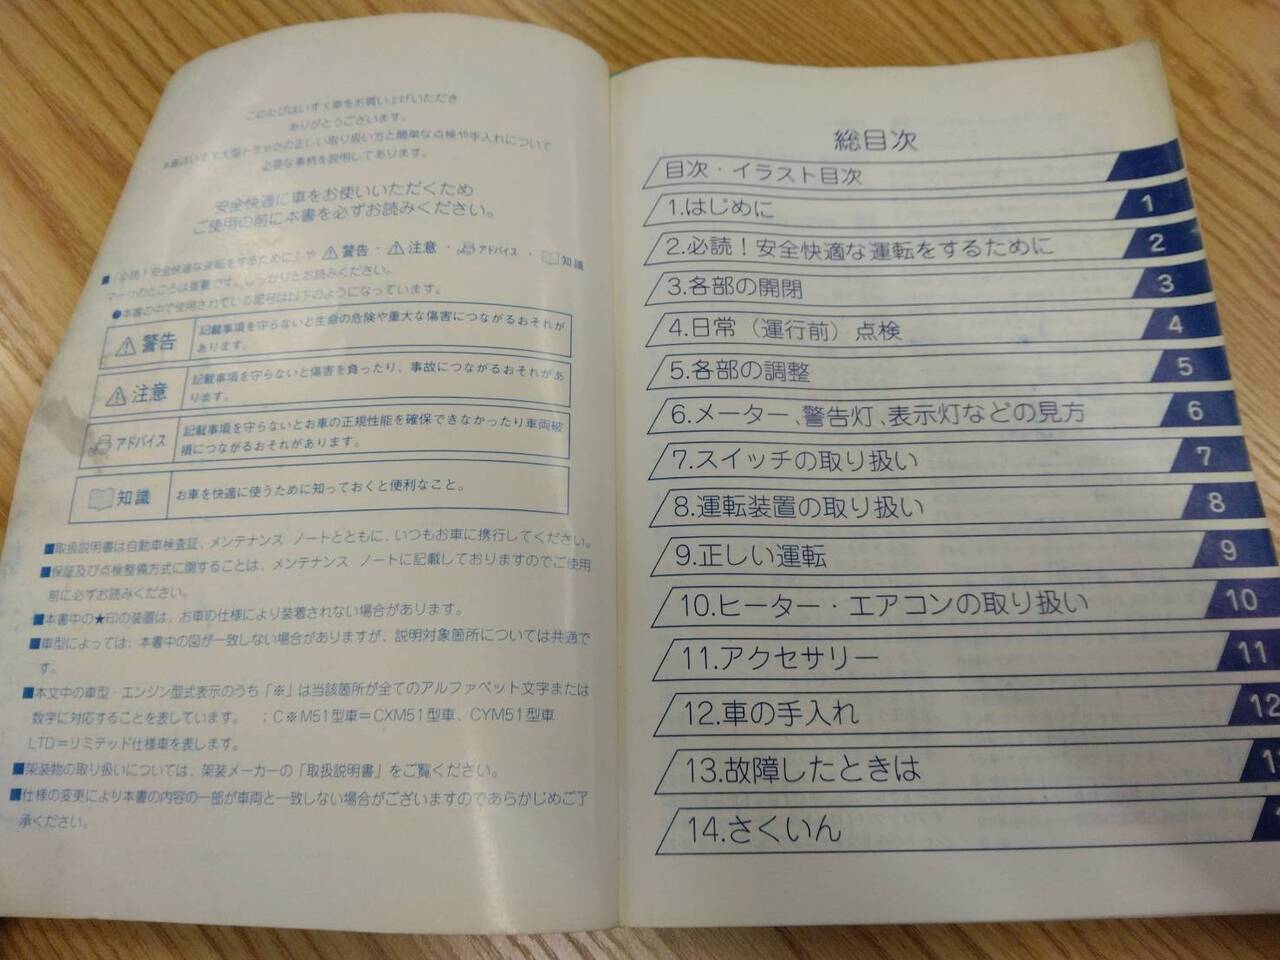 このたびはいすゞ車をお買い上げいただき
ありがとうございます。
本書はいすゞ大型トラックの正しい取り扱い方と簡単な点検や手入れについて
必要な事柄を説明してあります。
安全快適に車をお使いいただくため
ご使用の前に本書を必ずお読みください。
■「必読！安全快適な運転をするために」や ⚠警告・⚠注意・アドバイス・知識
マークのところは重要です。しっかりとお読みください。
●本書の中で使用されている記号は以下のようになっています。
⚠警告 記載事項を守らないと生命の危険や重大な傷害につながるおそれが
あります。
⚠注意 記載事項を守らないと傷害を負ったり、事故につながるおそれがあ
ります。
アドバイス 記載事項を守らないとお車の正規性能を確保できなかったり車両破
損につながるおそれがあります。
知識 お車を快適に使うために知っておくと便利なこと。
■取扱説明書は自動車検査証、メンテナンス ノートとともに、いつもお車に携行してください。
■保証及び点検整備方式に関することは、メンテナンス ノートに記載しておりますのでご使用
前に必ずお読みください。
■本書中の★印の装置は、お車の仕様により装着されない場合があります。
■車型によっては、本書中の図が一致しない場合がありますが、説明対象箇所については共通で
す。
■本文中の車型・エンジン型式表示のうち「※」は当該箇所が全てのアルファベット文字または
数字に対応することを表しています。 ；C※M51型車＝CXM51型車、CYM51型車
LTD＝リミテッド仕様車を表します。
■架装物の取り扱いについては、架装メーカーの「取扱説明書」をご覧ください。
■仕様の変更により本書の内容の一部が車両と一致しない場合がございますのであらかじめご了
承ください。
総目次
目次・イラスト目次
1.はじめに 1
2.必読！安全快適な運転をするために 2
3.各部の開閉 3
4.日常（運行前）点検 4
5.各部の調整 5
6.メーター、警告灯、表示灯などの見方 6
7.スイッチの取り扱い 7
8.運転装置の取り扱い 8
9.正しい運転 9
10.ヒーター・エアコンの取り扱い 10
11.アクセサリー 11
12.車の手入れ 12
13.故障したときは 13
14.さくいん